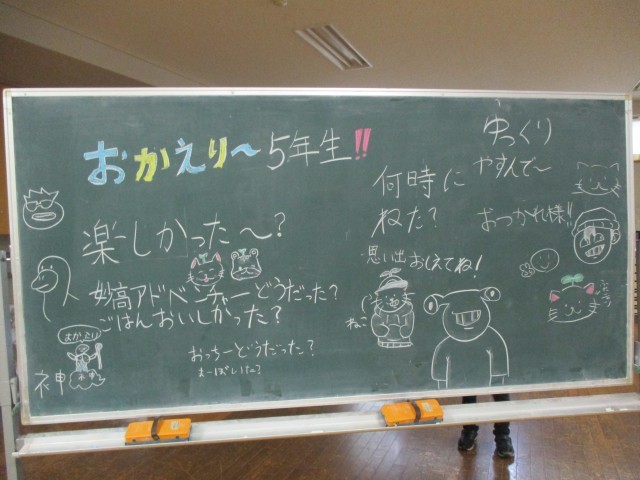 おかえり〜5年生!!
楽しかった〜?
妙高アドベンチャーどうだった?
ごはんおいしかった?
おっちーどうだった?
おかえり
神
何時に
ねた?
思い出おしえてね!
ねこ
ゆっくり
やすんで〜
おつかれ様!!